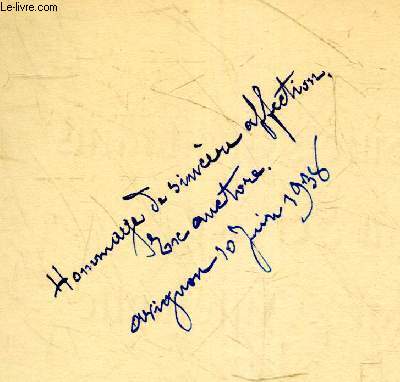 © Le-livre.com
Hommage de sincère affection,
Ex auctore.
avignon 10 Juin 1938